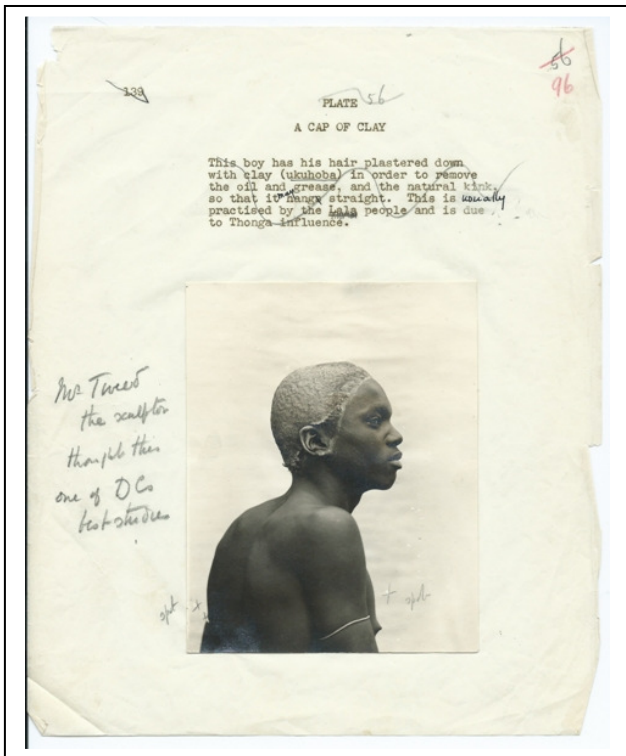 56
96
139
PLATE 56
A CAP OF CLAY
This boy has his hair plastered down
with clay (ukuhoba) in order to remove
the oil and grease, and the natural kink,
so that it may hang straight. This is usually
practised by the Lala people and is due
to Thonga influence.
Mr Tweed
the sculptor
thought this
one of DCs
best studies
spot + + spot